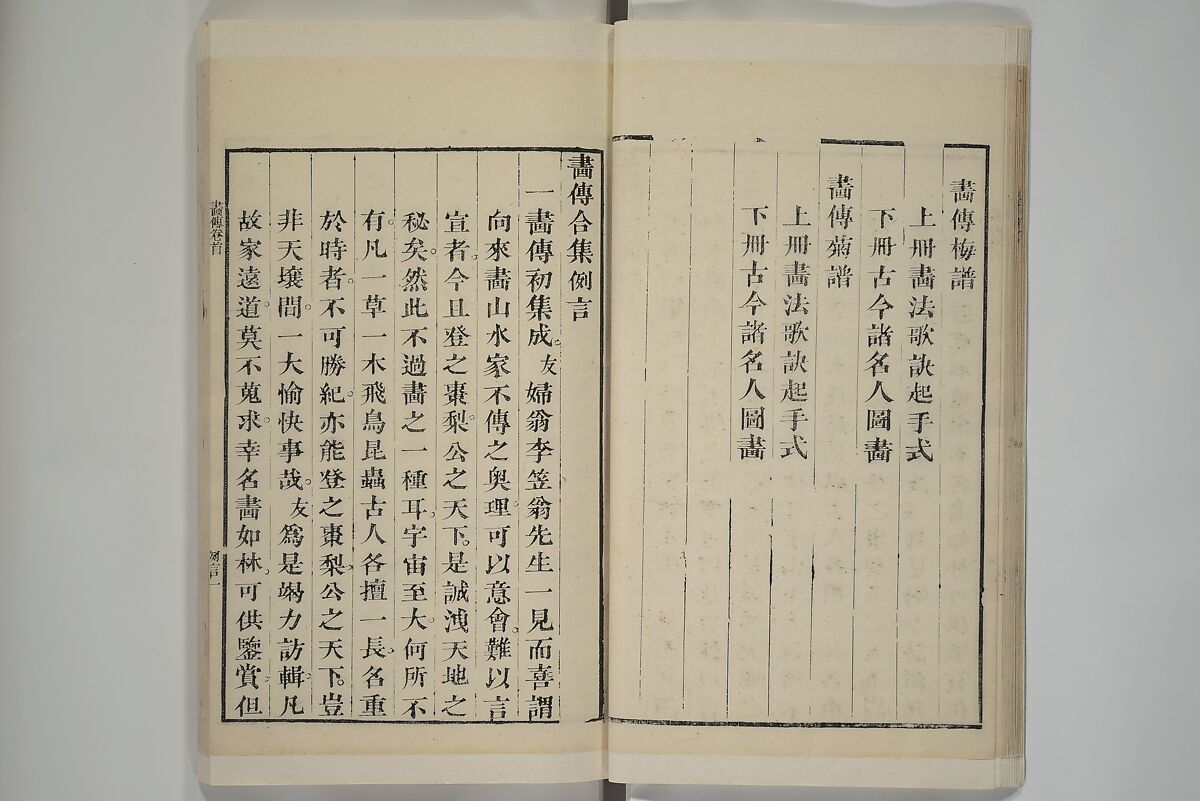 畵傳梅譜
上冊畵法歌訣起手式
下冊古今諸名人圖畵
畵傳菊譜
上冊畵法歌訣起手式
下冊古今諸名人圖畵
畵傳合集例言
一畵傳初集成。友婦翁李笠翁先生一見而喜謂
向來畵山水家不傳之奧理可以意會。難以言
宣者。今且登之棗梨。公之天下。是誠洩天地之
秘矣。然此不過畵之一種耳。宇宙至大。何所不
有。凡一草一木飛鳥昆蟲古人各擅一長。名重
於時者。不可勝紀。亦能登之棗梨。公之天下。豈
非天壤間。一大愉快事哉。友爲是竭力訪輯。凡
故家遠道。莫不蒐求。幸名畵如林。可供鑒賞。但
畵傳卷首
例言一